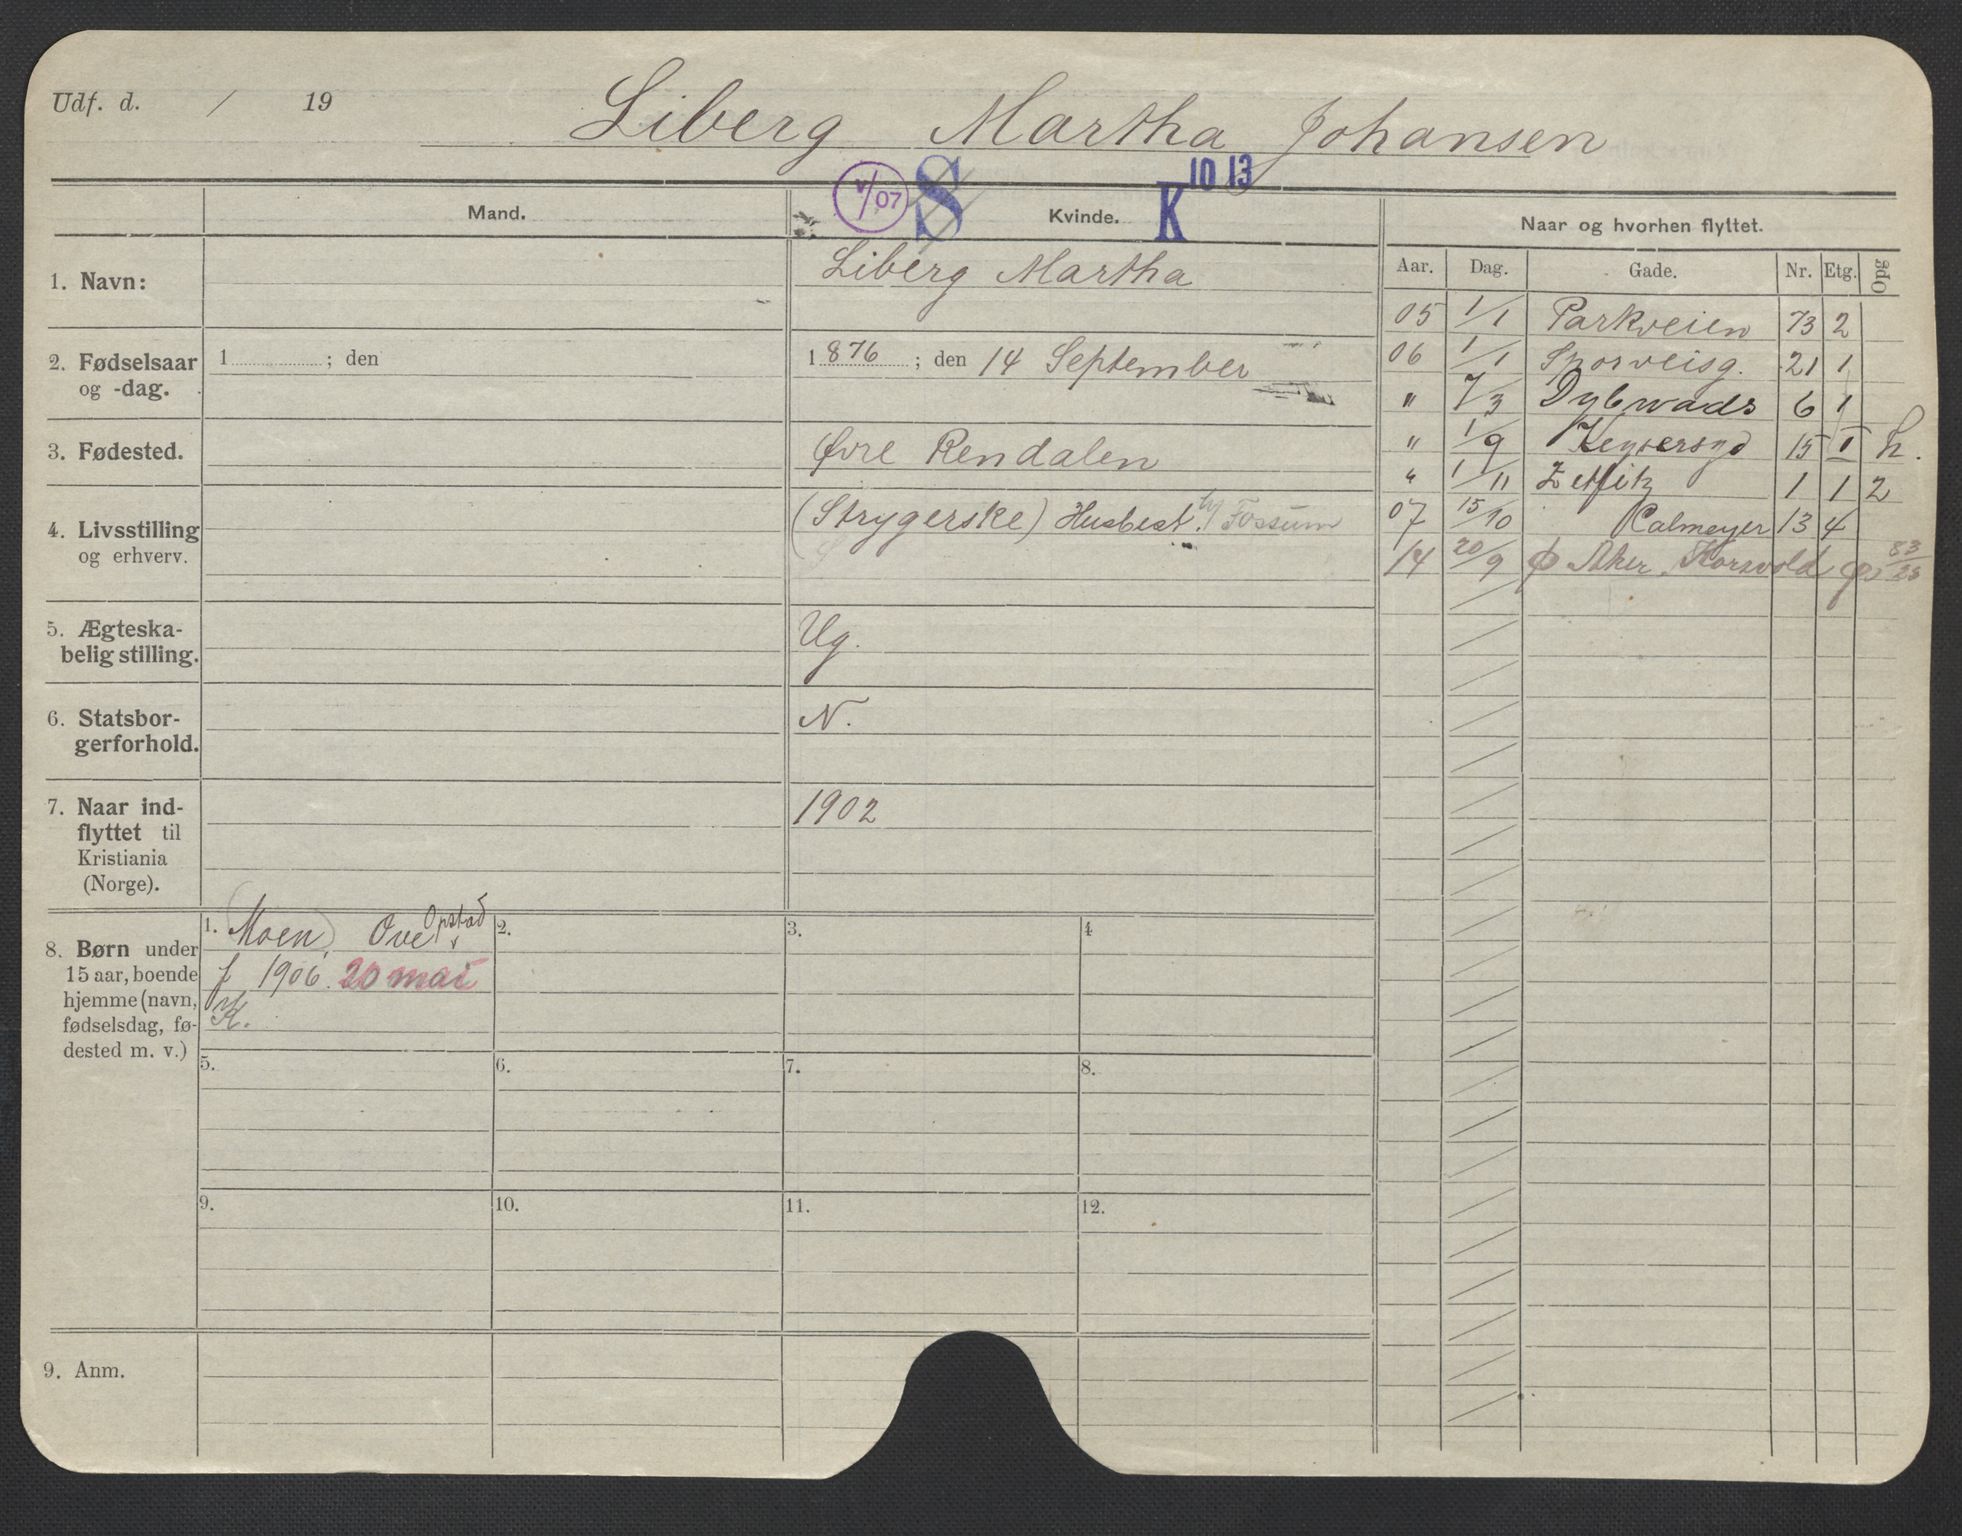 Udf. d. / 19
Liberg Martha Johansen
V/07 S K 10 13
Mand.
Kvinde.
Naar og hvorhen flyttet.
Aar. Dag. Gade. Nr. Etg. Opg
1. Navn:
Liberg Martha
2. Fødselsaar
og -dag.
1 ; den
1 876 ; den 14 September
3. Fødested.
Øvre Rendalen
4. Livsstilling
og erhverv.
(Strygerske) Husbest. Fossum
5. Ægteska-
belig stilling.
Ug.
6. Statsbor-
gerforhold.
N.
7. Naar ind-
flyttet til
Kristiania
(Norge).
1902
05 1/1 Parkveien 73 2
06 1/1 Sporveisg. 21 1
" 7/3 Dybwads 6 1
" 1/9 Keysersgd 15 I h.
" 1/11 Zetlitz 1 1 2
07 15/10 Calmeyer 13 4
14 20/9 Aker Korsvold 83/25
8. Børn under
15 aar, boende
hjemme (navn,
fødselsdag, fø-
dested m. v.)
1. (Moen) Ove Opstad
f 1906. 20 mai
K.
2.
3.
4
5.
6.
7.
8.
9.
10.
11.
12.
9. Anm.